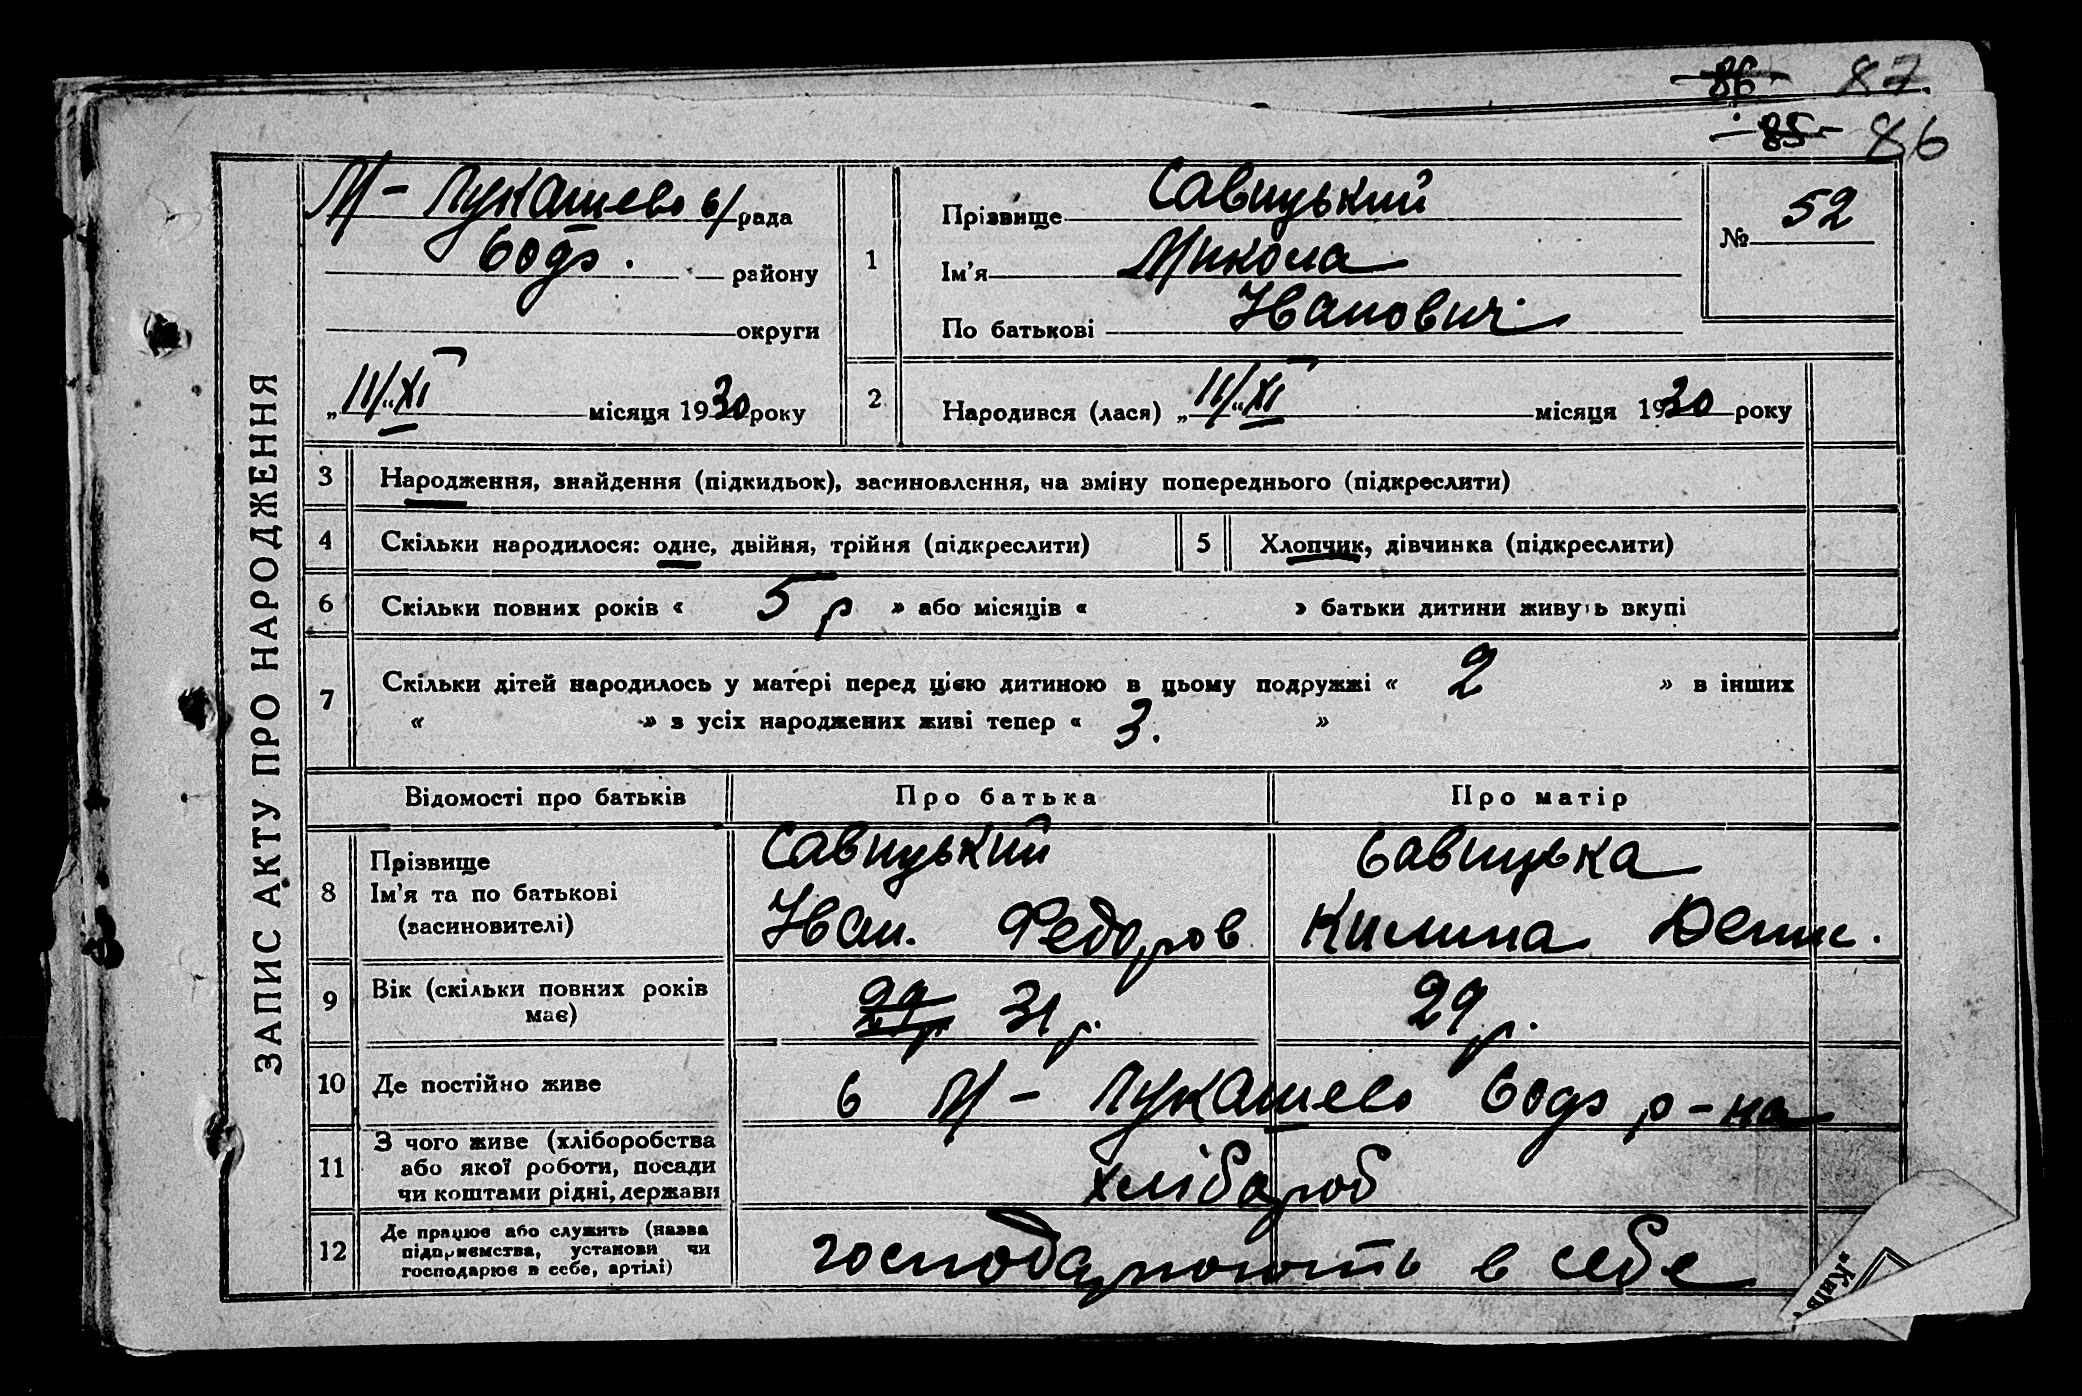 86 87
85 86
ЗАПИС АКТУ ПРО НАРОДЖЕННЯ
М-Лукашево с/рада
району
округи
„11/“XI місяця 1930 року
1
Прізвище Савицький
Ім'я Микола
По батькові Иванович
№ 52
2
Народився (лася) „11/“XI місяця 1930 року
3 Народження, знайдення (підкидьок), засиновлення, на зміну попереднього (підкреслити)
4 Скільки народилося: одне, двійня, трійня (підкреслити)
5 Хлопчик, дівчинка (підкреслити)
6 Скільки повних років « 5 р » або місяців « » батьки дитини живуть вкупі
7 Скільки дітей народилось у матері перед цією дитиною в цьому подружжі « 2 » в інших
« » з усіх народжених живі тепер « 3. »
Відомості про батьків Про батька Про матір
8
Прізвище
Ім'я та по батькові
(засиновителі)
Савицький
Иван. Федоров
Савицька
Килина Денис.
9
Вік (скільки повних років
має)
29р 31 р.
29 р.
10 Де постійно живе
в М-Лукашево р-на
11
З чого живе (хліборобства
або якої роботи, посади
чи коштами рідні, держави
хлібороб
12
Де працює або служить (назва
підприємства, установи чи
господарює в себе, артілі)
господарюють в себе
„Київ